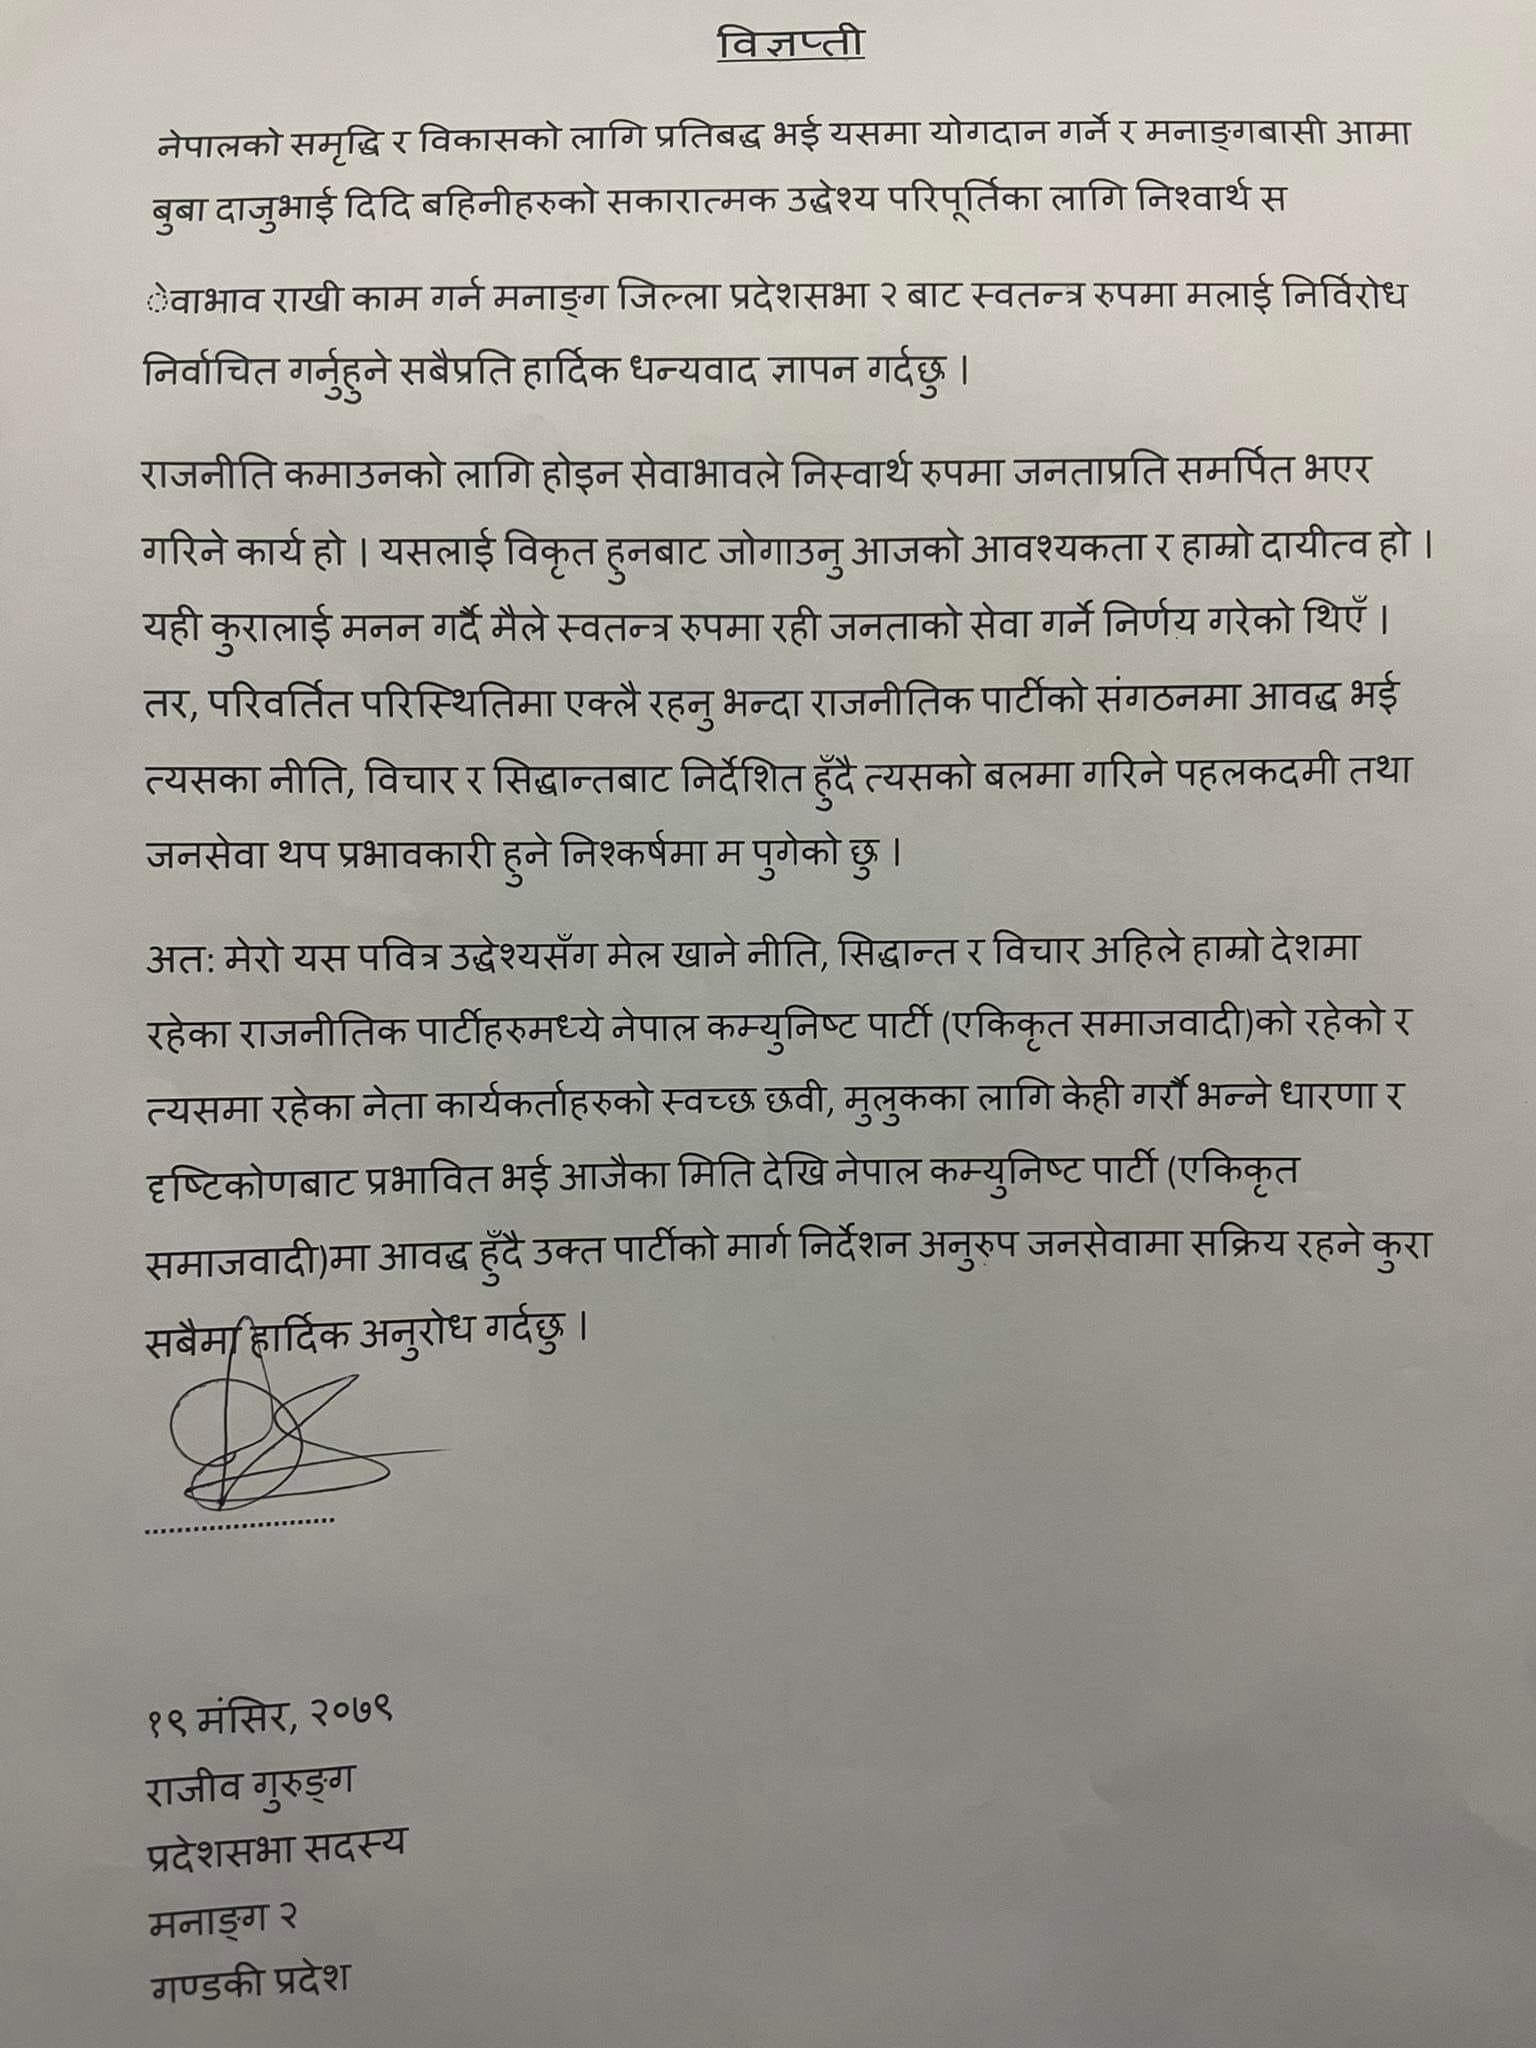 विज्ञप्ती
नेपालको समृद्धि र विकासको लागि प्रतिबद्ध भई यसमा योगदान गर्ने र मनाङ्गबासी आमा
बुबा दाजुभाई दिदि बहिनीहरुको सकारात्मक उद्धेश्य परिपूर्तिका लागि निश्वार्थ स
ेवाभाव राखी काम गर्न मनाङ्ग जिल्ला प्रदेशसभा २ बाट स्वतन्त्र रुपमा मलाई निर्विरोध
निर्वाचित गर्नुहुने सबैप्रति हार्दिक धन्यवाद ज्ञापन गर्दछु ।
राजनीति कमाउनको लागि होइन सेवाभावले निस्वार्थ रुपमा जनताप्रति समर्पित भएर
गरिने कार्य हो । यसलाई विकृत हुनबाट जोगाउनु आजको आवश्यकता र हाम्रो दायीत्व हो ।
यही कुरालाई मनन गर्दै मैले स्वतन्त्र रुपमा रही जनताको सेवा गर्ने निर्णय गरेको थिएँ ।
तर, परिवर्तित परिस्थितिमा एक्लै रहनु भन्दा राजनीतिक पार्टीको संगठनमा आवद्ध भई
त्यसका नीति, विचार र सिद्धान्तबाट निर्देशित हुँदै त्यसको बलमा गरिने पहलकदमी तथा
जनसेवा थप प्रभावकारी हुने निश्कर्षमा म पुगेको छु ।
अत: मेरो यस पवित्र उद्धेश्यसँग मेल खाने नीति, सिद्धान्त र विचार अहिले हाम्रो देशमा
रहेका राजनीतिक पार्टीहरुमध्ये नेपाल कम्युनिष्ट पार्टी (एकिकृत समाजवादी)को रहेको र
त्यसमा रहेका नेता कार्यकर्ताहरुको स्वच्छ छवी, मुलुकका लागि केही गरौँ भन्ने धारणा र
दृष्टिकोणबाट प्रभावित भई आजैका मिति देखि नेपाल कम्युनिष्ट पार्टी (एकिकृत
समाजवादी)मा आवद्ध हुँदै उक्त पार्टीको मार्ग निर्देशन अनुरुप जनसेवामा सक्रिय रहने कुरा
सबैमा हार्दिक अनुरोध गर्दछु ।
........................
१९ मंसिर, २०७९
राजीव गुरुङ्ग
प्रदेशसभा सदस्य
मनाङ्ग २
गण्डकी प्रदेश